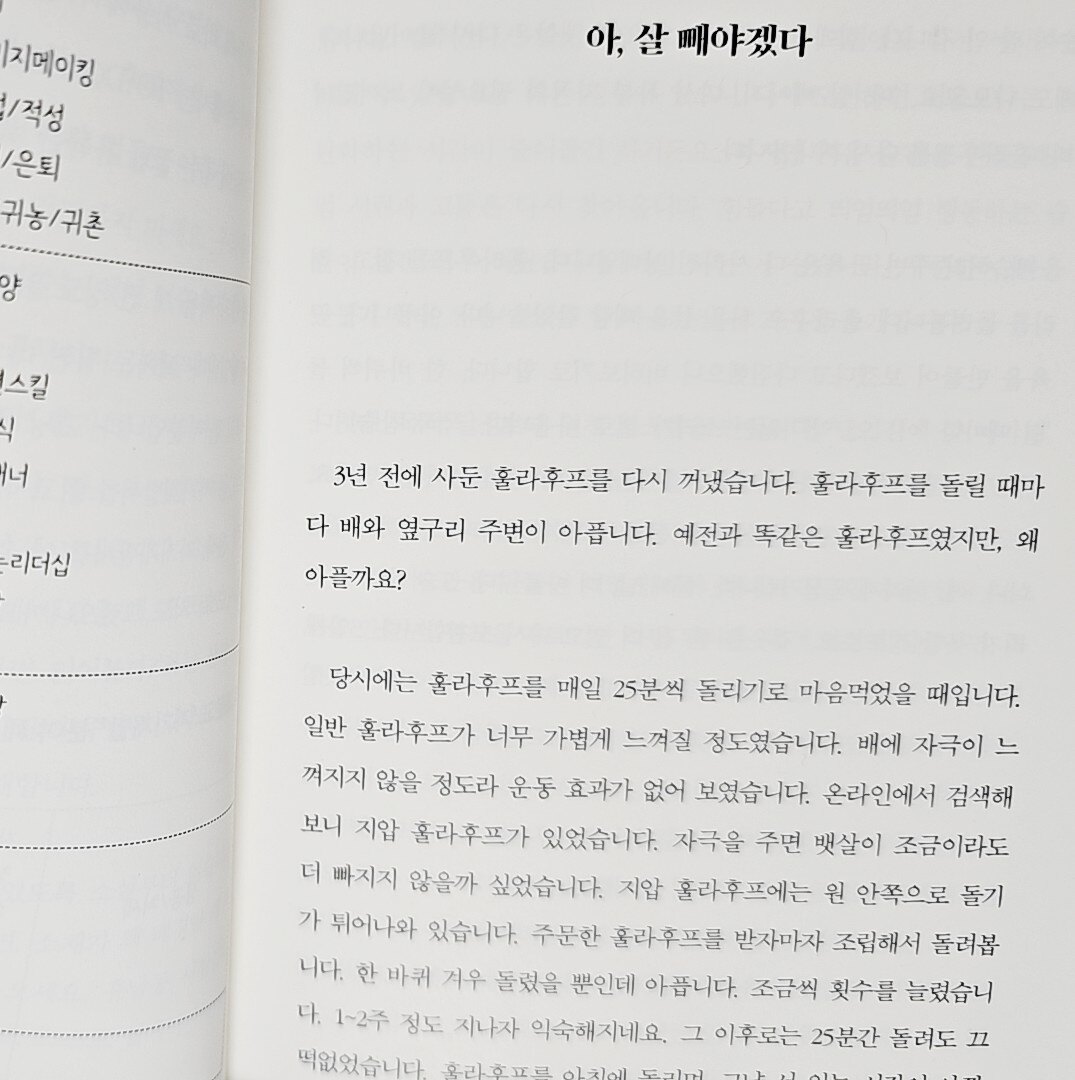 이지메이킹
/적성
/은퇴
귀농/귀촌
양
스킬
식
매너
는리더십
아, 살 빼야겠다
3년 전에 사둔 훌라후프를 다시 꺼냈습니다. 훌라후프를 돌릴 때마
다 배와 옆구리 주변이 아픕니다. 예전과 똑같은 훌라후프였지만, 왜
아플까요?
당시에는 훌라후프를 매일 25분씩 돌리기로 마음먹었을 때입니다.
일반 훌라후프가 너무 가볍게 느껴질 정도였습니다. 배에 자극이 느
껴지지 않을 정도라 운동 효과가 없어 보였습니다. 온라인에서 검색해
보니 지압 훌라후프가 있었습니다. 자극을 주면 뱃살이 조금이라도
더 빠지지 않을까 싶었습니다. 지압 훌라후프에는 원 안쪽으로 돌기
가 튀어나와 있습니다. 주문한 훌라후프를 받자마자 조립해서 돌려봅
니다. 한 바퀴 겨우 돌렸을 뿐인데 아픕니다. 조금씩 횟수를 늘렸습니
다. 1~2주 정도 지나자 익숙해지네요. 그 이후로는 25분간 돌려도 끄
떡없었습니다. 훌라후프를 아침에 돌리며